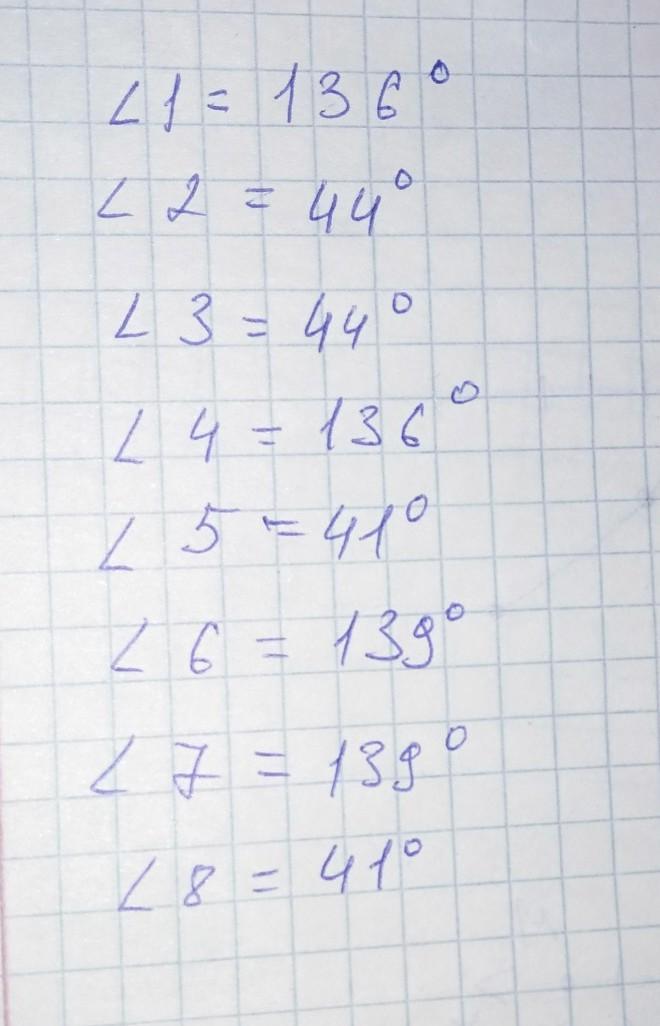 ∠1 = 136°
∠2 = 44°
∠3 = 44°
∠4 = 136°
∠5 = 41°
∠6 = 139°
∠7 = 139°
∠8 = 41°